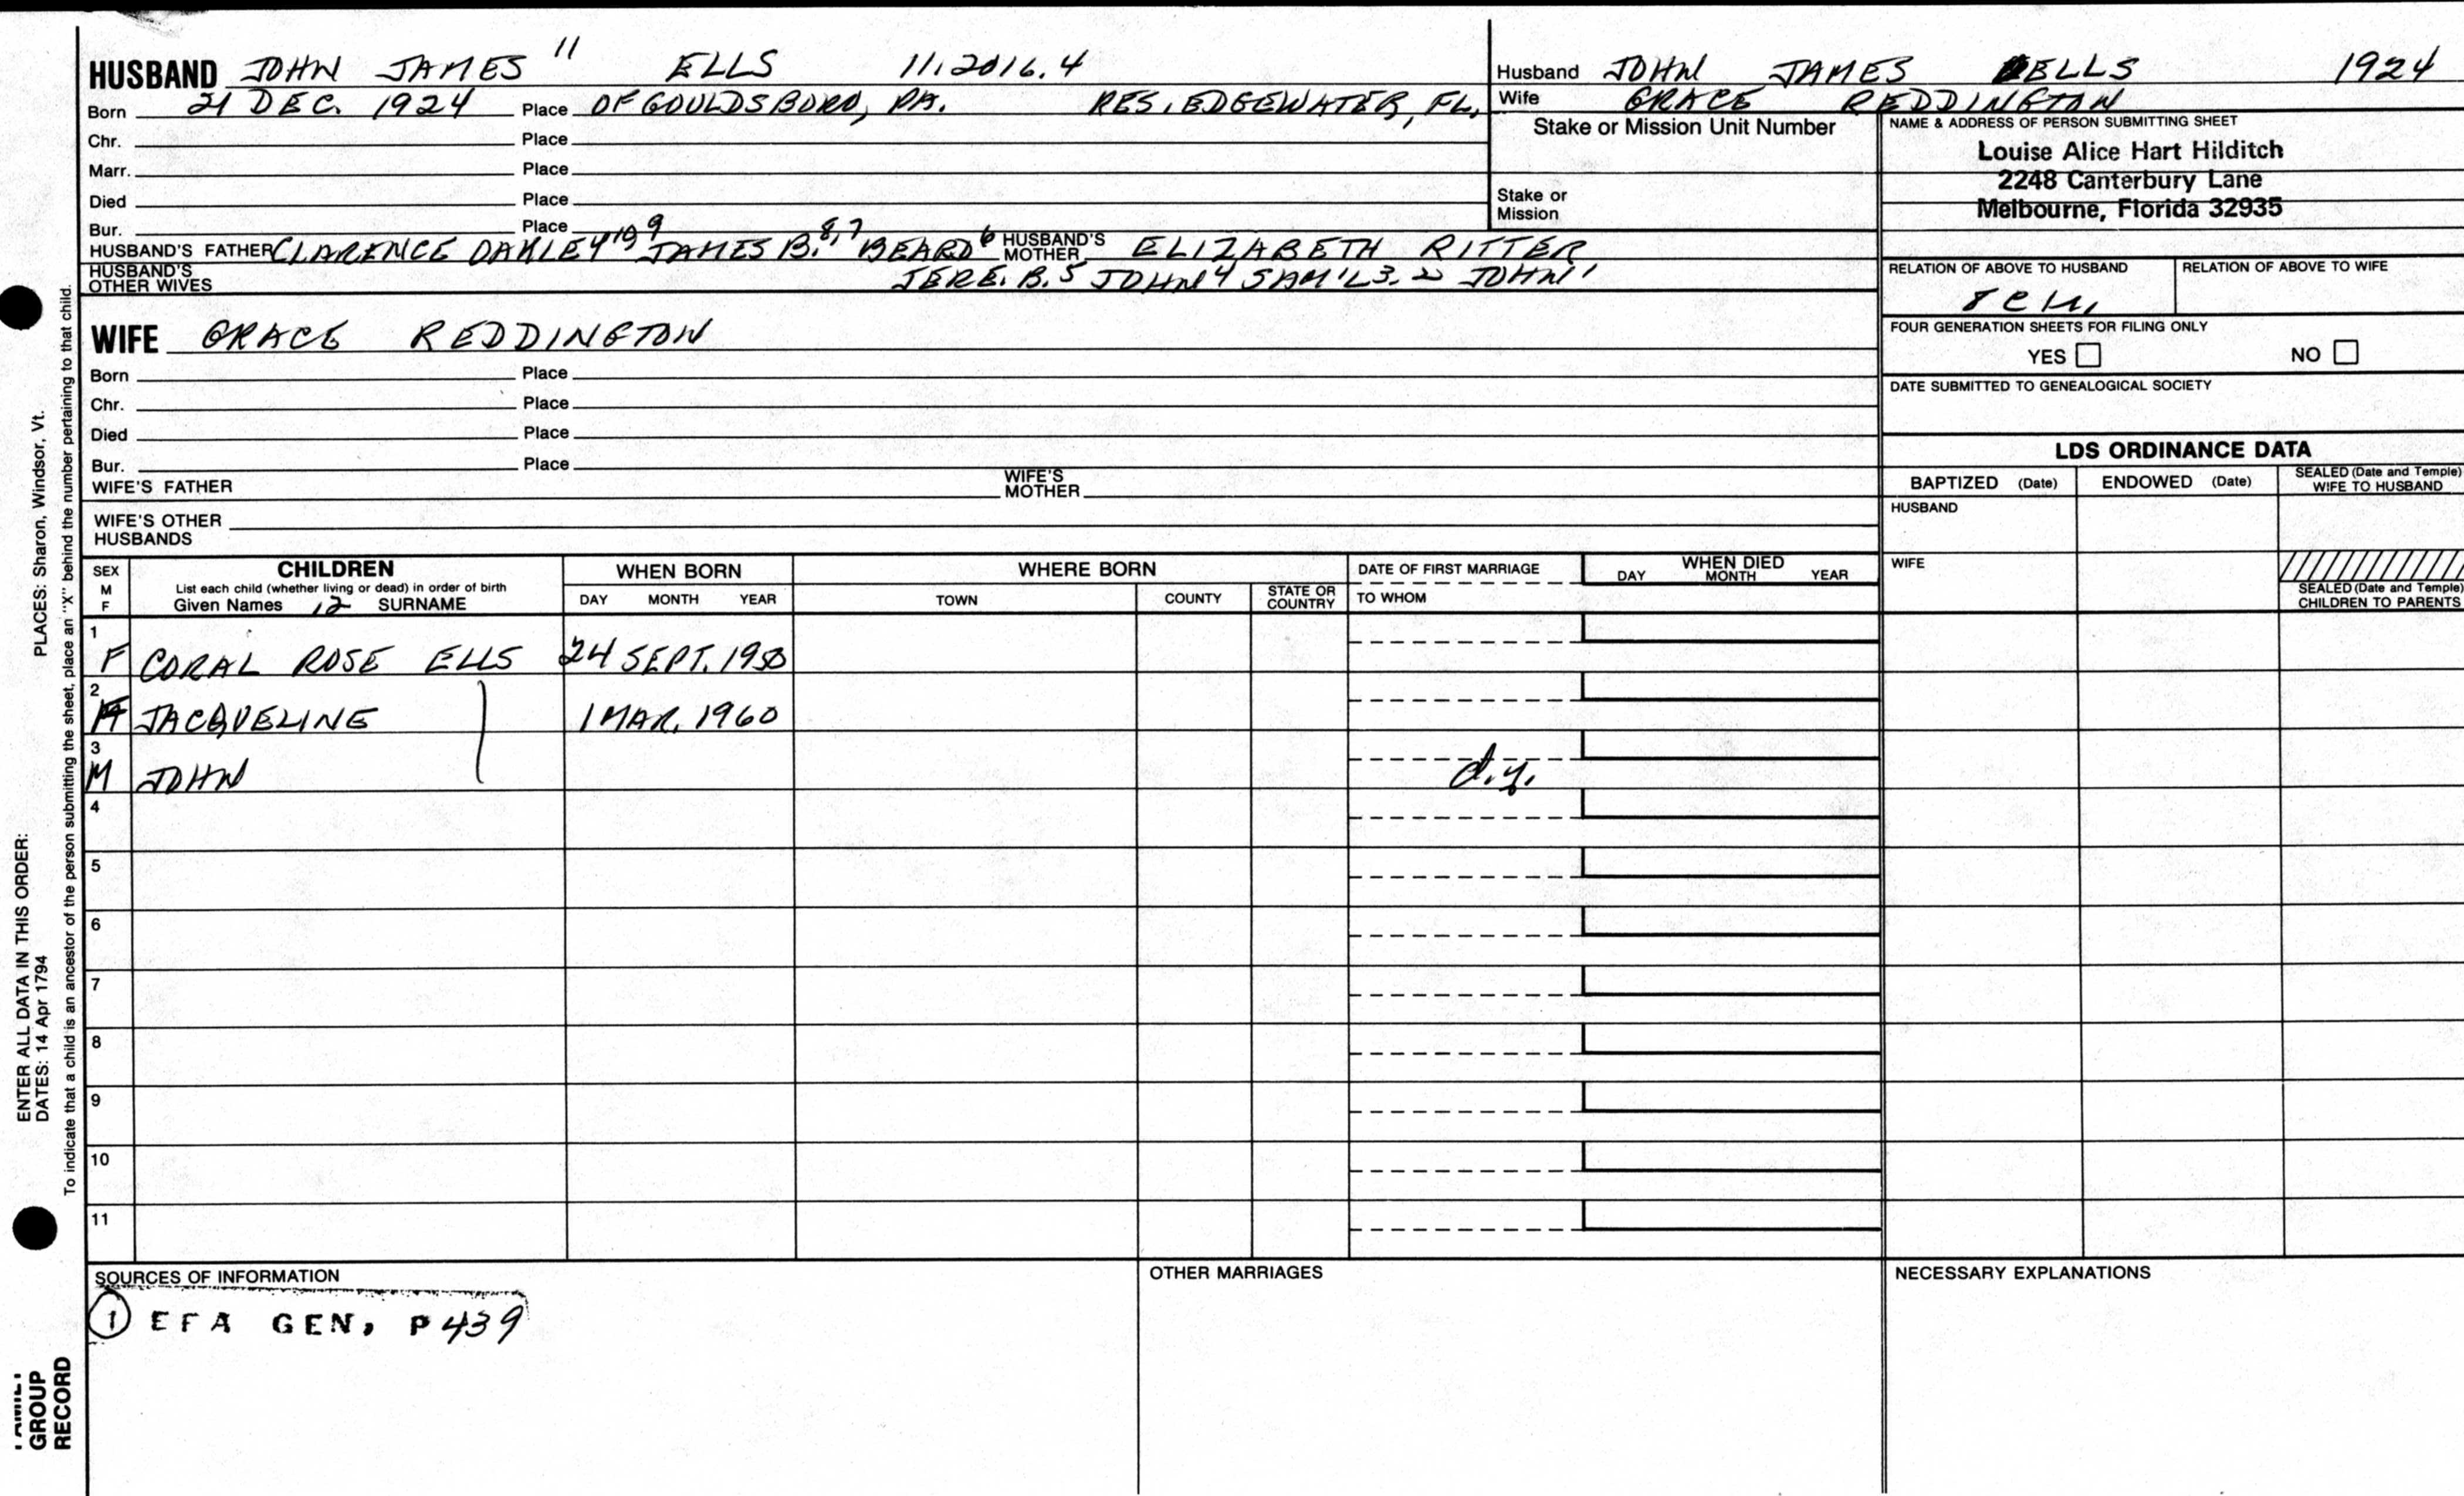 HUSBAND JOHN JAMES 11 ELLS 11.2016.4
Born 21 DEC. 1924 Place OF GOULDSBORO, PA. RES. EDGEWATER, FL.
Chr. Place
Marr. Place
Died Place
Bur. Place
HUSBAND'S FATHER CLARENCE OAKLEY 10 9 JAMES B. 8,7 BEARD 6 HUSBAND'S MOTHER ELIZABETH RITTER
HUSBAND'S OTHER WIVES JERE. B. 5 JOHN 4 SAM'L 3. 2 JOHN 1
WIFE GRACE REDDINGTON
Born Place
Chr. Place
Died Place
Bur. Place
WIFE'S FATHER WIFE'S MOTHER
WIFE'S OTHER HUSBANDS
Husband JOHN JAMES ELLS 1924
Wife GRACE REDDINGTON
Stake or Mission Unit Number
Stake or Mission
NAME & ADDRESS OF PERSON SUBMITTING SHEET
Louise Alice Hart Hilditch
2248 Canterbury Lane
Melbourne, Florida 32935
RELATION OF ABOVE TO HUSBAND RELATION OF ABOVE TO WIFE
FOUR GENERATION SHEETS FOR FILING ONLY
YES NO
DATE SUBMITTED TO GENEALOGICAL SOCIETY
LDS ORDINANCE DATA
BAPTIZED (Date) ENDOWED (Date) SEALED (Date and Temple) WIFE TO HUSBAND
HUSBAND
WIFE
SEALED (Date and Temple) CHILDREN TO PARENTS
SEX M F
CHILDREN
List each child (whether living or dead) in order of birth
Given Names 12 SURNAME
WHEN BORN
DAY MONTH YEAR
WHERE BORN
TOWN COUNTY STATE OR COUNTRY
DATE OF FIRST MARRIAGE
TO WHOM
WHEN DIED
DAY MONTH YEAR
1 F CORAL ROSE ELLS 24 SEPT. 1950
2 F JACQUELINE 1 MAR. 1960
3 M JOHN d.y.
4
5
6
7
8
9
10
11
SOURCES OF INFORMATION
1 EFA GEN, P439
OTHER MARRIAGES
NECESSARY EXPLANATIONS
PLACES: Sharon, Windsor, Vt.
ENTER ALL DATA IN THIS ORDER:
DATES: 14 Apr 1794
To indicate that a child is an ancestor of the person submitting the sheet, place an "X" behind the number pertaining to that child.
FAMILY
GROUP
RECORD